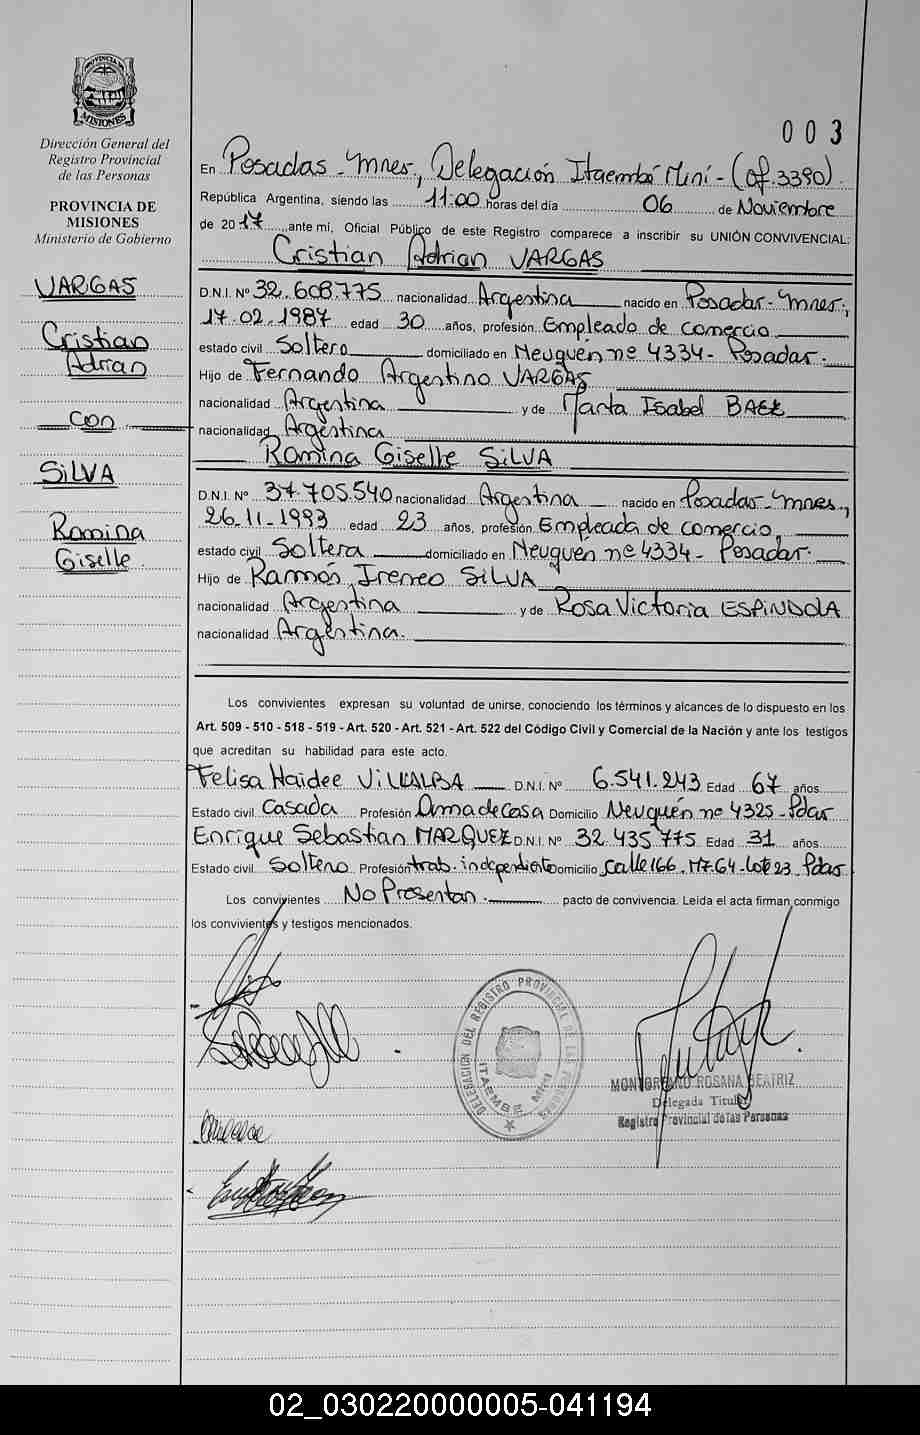 PROVINCIA DE
MISIONES
Dirección General del
Registro Provincial
de las Personas
PROVINCIA DE
MISIONES
Ministerio de Gobierno
VARGAS
Cristian
Adrian
con
SILVA
Romina
Giselle.
003
En Posadas - Mnes., Delegación Itaembé Miní - (of. 3390).
República Argentina, siendo las 11:00 horas del día 06 de Noviembre
de 2017 ante mí, Oficial Público de este Registro comparece a inscribir su UNIÓN CONVIVENCIAL:
Cristian Adrian VARGAS
D.N.I. Nº 32.608.775 nacionalidad Argentina nacido en Posadas - Mnes.,
17.02.1987 edad 30 años, profesión Empleado de comercio
estado civil Soltero domiciliado en Neuquén nº 4334 - Posadas.
Hijo de Fernando Argentino VARGAS
nacionalidad Argentina y de Marta Isabel BAEZ
nacionalidad Argentina
Romina Giselle SILVA
D.N.I. Nº 37.705.540 nacionalidad Argentina nacido en Posadas - Mnes.,
26.11.1993 edad 23 años, profesión Empleada de comercio,
estado civil Soltera domiciliado en Neuquén nº 4334 - Posadas.
Hijo de Ramón Ireneo SILVA
nacionalidad Argentina y de Rosa Victoria ESPINDOLA
nacionalidad Argentina.
Los convivientes expresan su voluntad de unirse, conociendo los términos y alcances de lo dispuesto en los
Art. 509 - 510 - 518 - 519 - Art. 520 - Art. 521 - Art. 522 del Código Civil y Comercial de la Nación y ante los testigos
que acreditan su habilidad para este acto.
Felisa Haidee VILLALBA D.N.I. Nº 6.541.243 Edad 67 años
Estado civil Casada Profesión Ama de casa Domicilio Neuquén nº 4325 - Pdas
Enrique Sebastian MARQUEZ D.N.I. Nº 32.435.775 Edad 31 años
Estado civil Soltero Profesión trab. independiente Domicilio Calle 166. Mz 64 - Lote 23 - Pdas
Los convivientes No Presentan. pacto de convivencia. Leída el acta firman conmigo
los convivientes y testigos mencionados.
DELEGACION DEL REGISTRO PROVINCIAL DE LAS PERSONAS
ITAEMBE MINI
MONTORFANO ROSANA BEATRIZ
Delegada Titular
Registro Provincial de las Personas
02_030220000005-041194